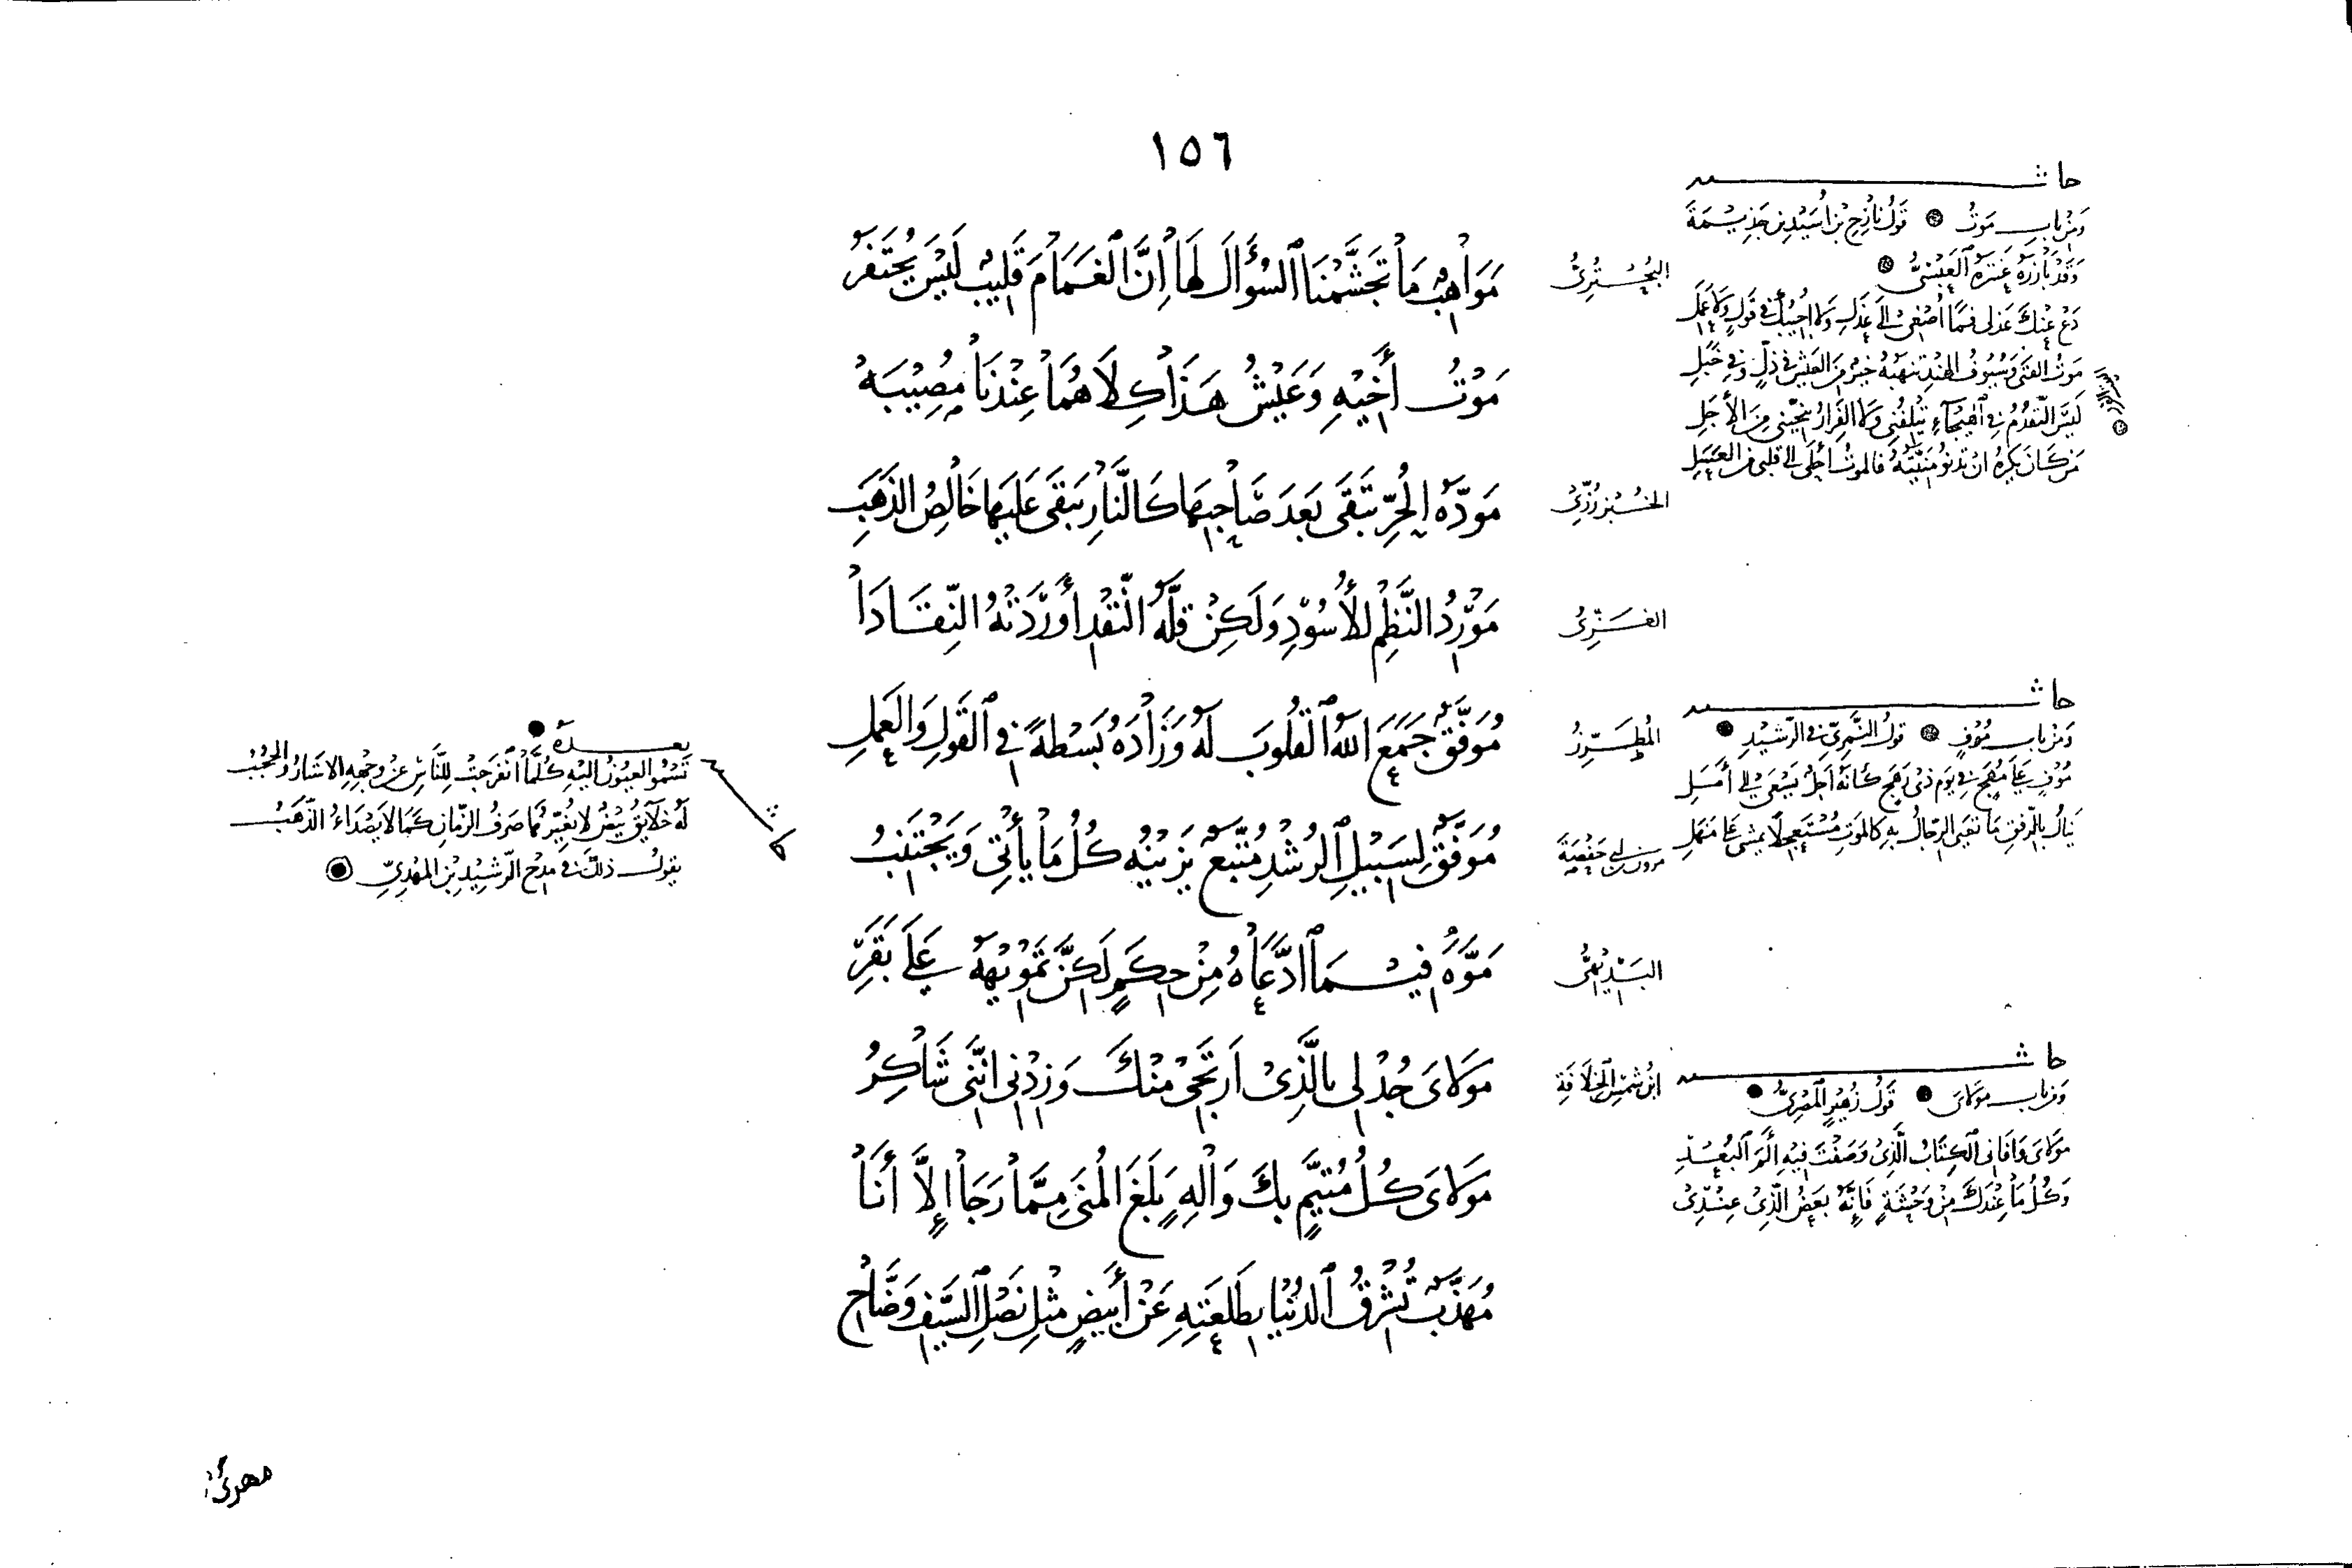 ١٥٦
مَوَاهِبٌ مَا تَجَشَّمْنَا السُّؤَالَ لَهَا إِنَّ الْغَمَامَ قَلِيبٌ لَيْسَ يُحْتَفَرُ
مَوْتُ أَخِيهِ وَعَيْشُ هَذَا كِلَاهُمَا عِنْدَنَا مُصِيبَهْ
مَوَدَّةُ الْحُرِّ تَبْقَى بَعْدَ صَاحِبِهَا كَالنَّارِ يَبْقَى عَلَيْهَا خَالِصُ الذَّهَبِ
مَوْرِدُ النَّظْمِ لِلْأُسُودِ وَلَكِنْ قِلَّةُ النَّقْدِ أَوْرَدَتْهُ النِّقَادَا
مُوَفَّقٌ جَمَعَ اللهُ الْقُلُوبَ لَهُ وَزَادَهُ بَسْطَةً فِي الْقَوْلِ وَالْعَمَلِ
مُوَفَّقٌ لِسَبِيلِ الرُّشْدِ مُتَّبِعٌ يَزِينُهُ كُلُّ مَا يَأْتِي وَيَجْتَنِبُ
مَوَّهَ فِيمَا ادَّعَاهُ مِنْ حِكَمٍ لَكِنَّ تَمْوِيهَهُ عَلَى بَقَرِ
مَوْلَايَ جُدْ لِي بِالَّذِي أَرْتَجِي مِنْكَ وَزِدْنِي إِنَّنِي شَاكِرُ
مَوْلَايَ كُلُّ مُتَيَّمٍ بِكَ وَالِهٍ بَلَغَ الْمُنَى مِمَّا رَجَا إِلَّا أَنَا
مُهَذَّبٌ تُشْرِقُ الدُّنْيَا بِطَلْعَتِهِ عَنْ أَبْيَضٍ مِثْلِ نَصْلِ السَّيْفِ وَضَّاحِ
البُحْتُرِيُّ
الخُبْزَرُزِّيُّ
الغَزِّيُّ
المُطَرِّزُ
مروان بن أبي حَفْصَةَ
البَدِيهِيُّ
ابْنُ شَمْسِ الخِلَافَةِ
حاشية
وَمِنْ بَابِ مَوْتُ قَوْلُ نَازِحِ بْنِ أُسَيْدِ بْنِ جَذِيمَةَ
وَقَدْ بَارَزَهُ عَنْتَرَةُ الْعَبْسِيُّ
دَعْ عَنْكَ عَذْلِي فَمَا أُصْغِي إِلَى عَذَلِ وَلَا أُجِيبُكَ فِي قَوْلٍ وَلَا عَمَلِ
مَوْتُ الْفَتَى وَسُيُوفُ الْهِنْدِ تَنْهَبُهُ خَيْرٌ مِنَ الْعَيْشِ فِي ذُلٍّ وَفِي خَبَلِ
لَيْسَ التَّقَدُّمُ فِي الْهَيْجَاءِ يُتْلِفُنِي وَلَا الْفِرَارُ يُنَجِّينِي مِنَ الْأَجَلِ
مَنْ كَانَ يَكْرَهُ أَنْ تَدْنُو مَنِيَّتُهُ فَالْمَوْتُ أَحْلَى إِلَى قَلْبِي مِنَ الْعَسَلِ
حاشية
وَمِنْ بَابِ مُوفٍ قَوْلُ النَّمَرِيِّ فِي الرَّشِيدِ
مُوفٍ عَلَى مُهَجٍ فِي يَوْمِ ذِي رَهَجٍ كَأَنَّهُ أَجَلٌ يَسْعَى إِلَى أَمَلِ
يَنَالُ بِالرِّفْقِ مَا تَعْيَى الرِّجَالُ بِهِ كَالْمَوْتِ مُسْتَعْجِلًا يَمْشِي عَلَى مَهَلِ
حاشية
وَمِنْ بَابِ مَوْلَايَ قَوْلُ زُهَيْرٍ الْمِصْرِيِّ
مَوْلَايَ وَافَانِي الْكِتَابُ الَّذِي وَصَفْتَ فِيهِ أَلَمَ الْبُعْدِ
وَكُلُّ مَا عِنْدَكَ مِنْ وَحْشَةٍ فَإِنَّهُ بَعْضُ الَّذِي عِنْدِي
بعده
تَسْمُو الْعُيُونُ إِلَيْهِ كُلَّمَا انْفَرَجَتْ لِلنَّاسِ عَنْ وَجْهِهِ الْأَسْتَارُ وَالْحُجُبُ
لَهُ خَلَائِقُ بِيضٌ لَا يُغَيِّرُهَا صَرْفُ الزَّمَانِ كَمَا لَا يَصْدَأُ الذَّهَبُ
يَقُولُ ذَلِكَ فِي مَدْحِ الرَّشِيدِ بْنِ الْمَهْدِيِّ